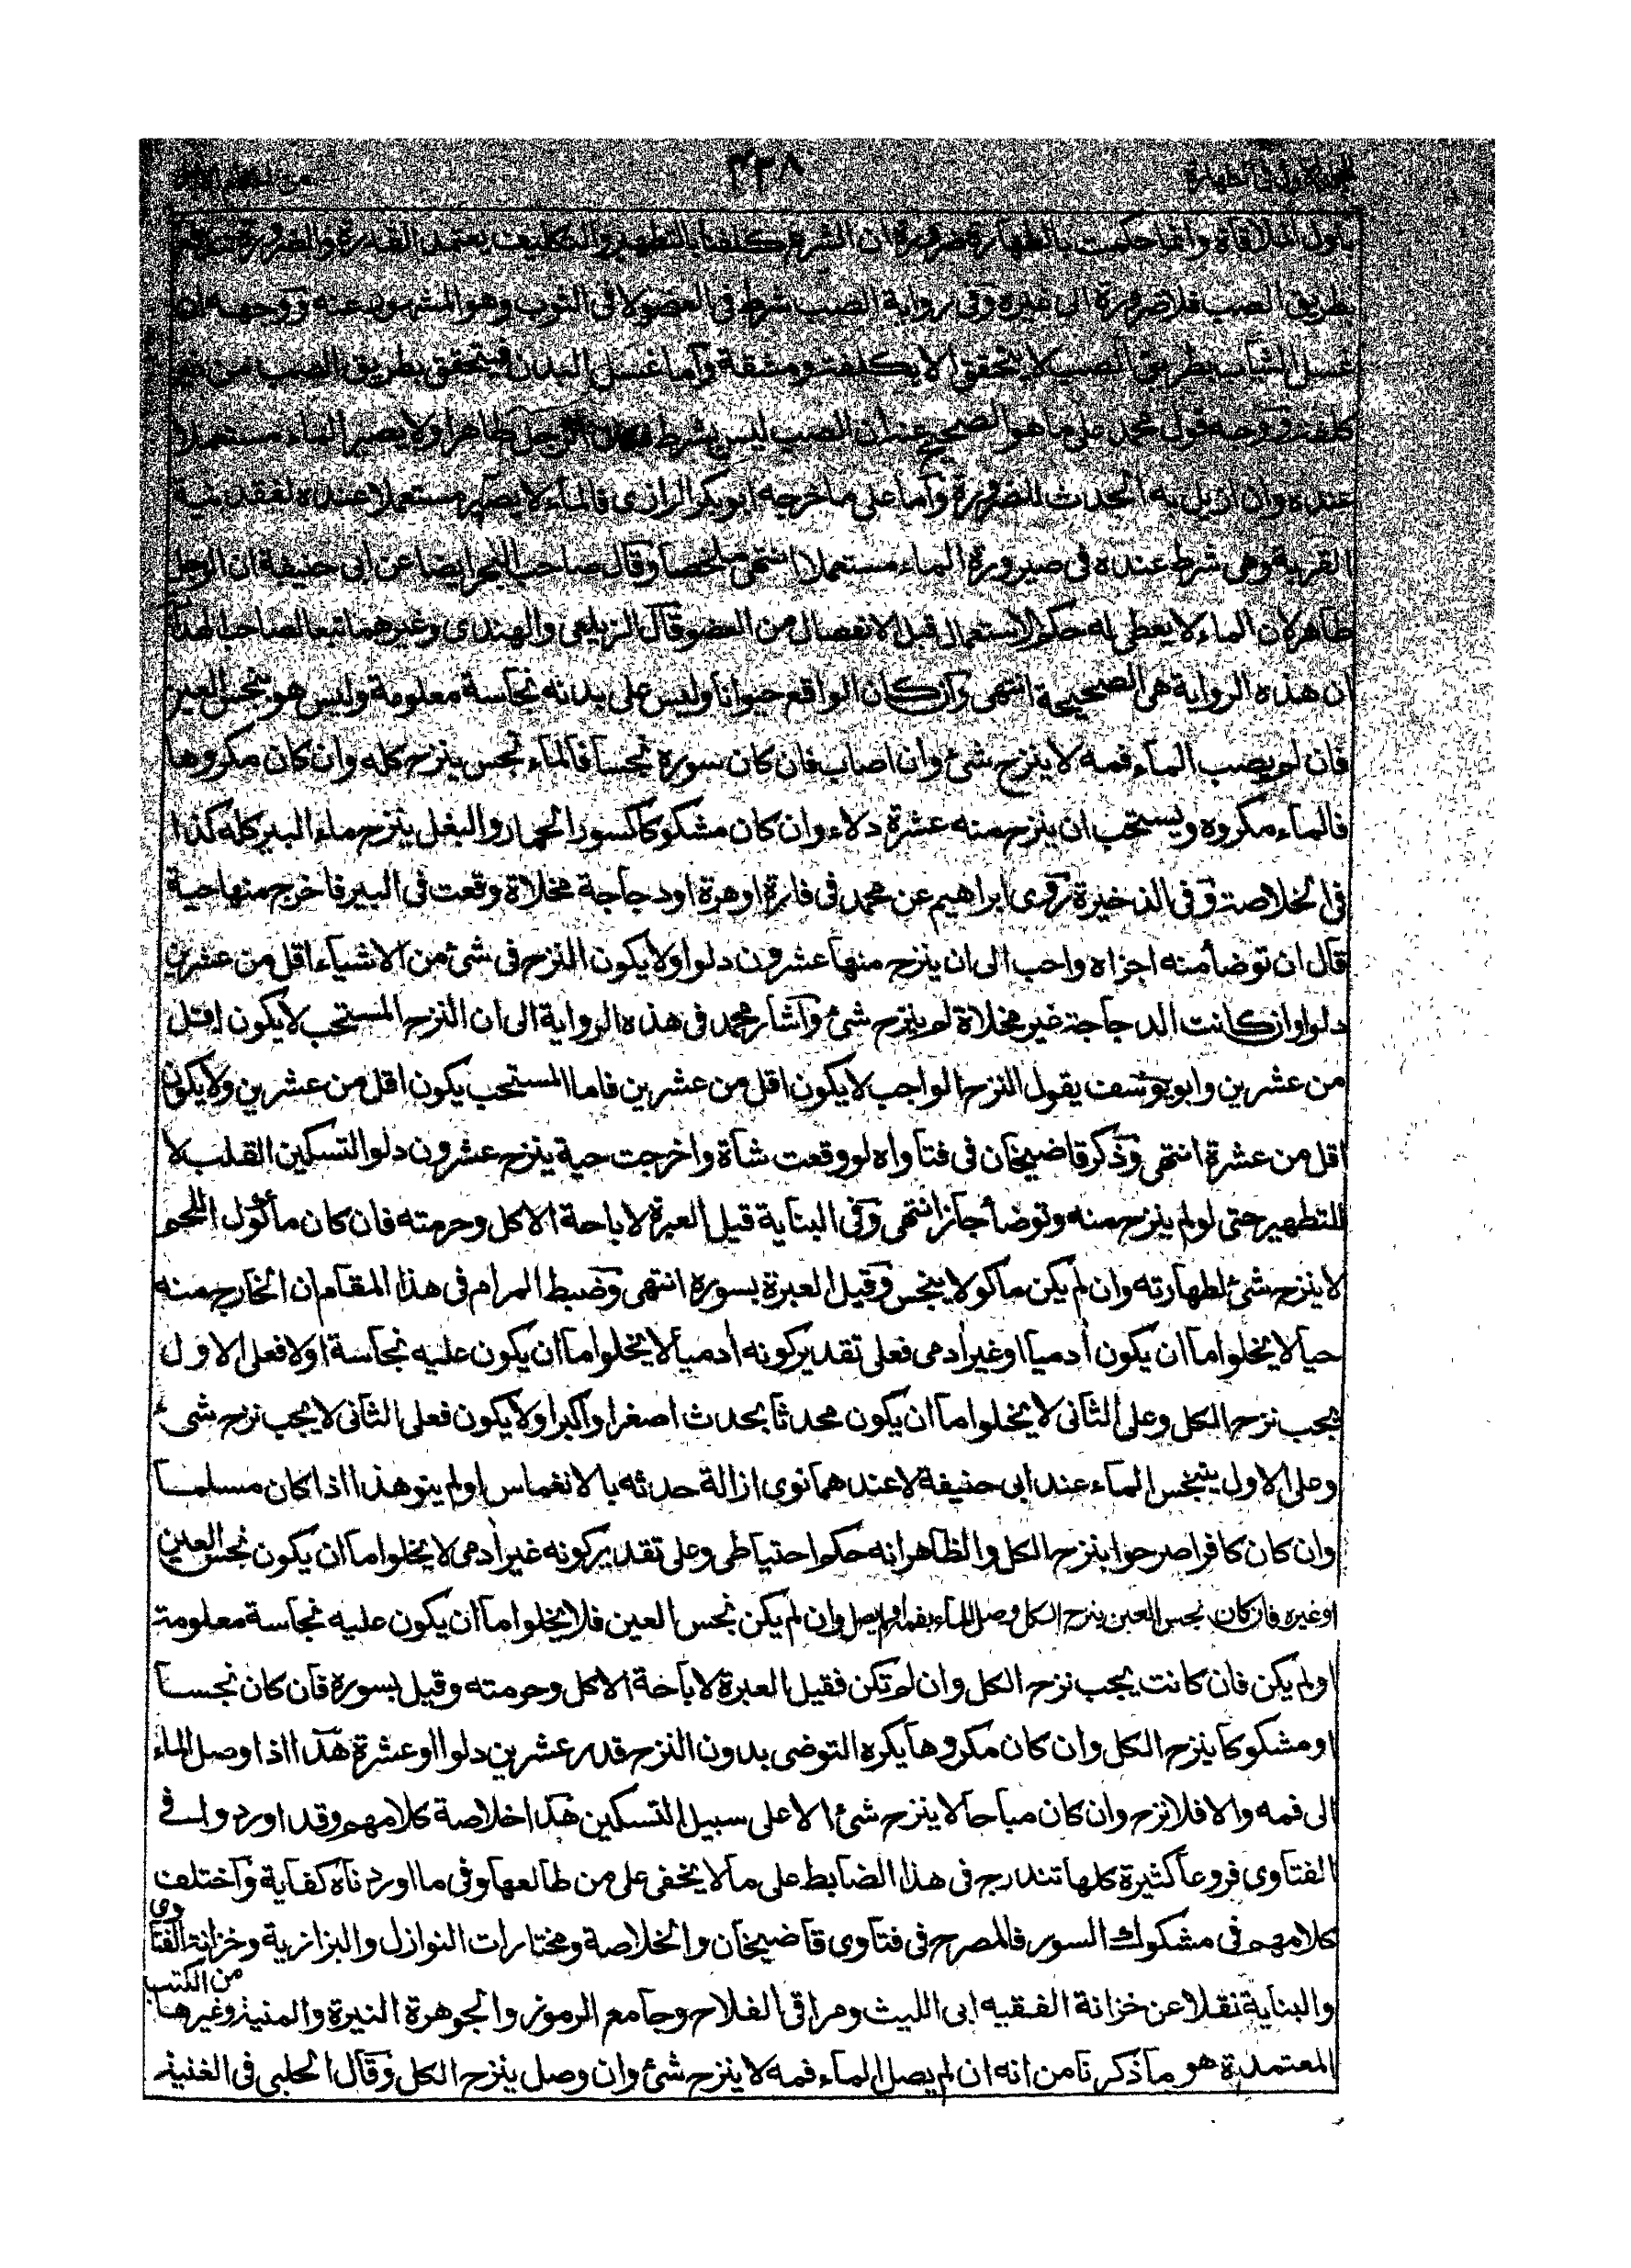 ٤٣٨
باول الملاقاة وانما حكمت بالطهارة ضرورة ان الشرع كلفنا بالتطهير والتكليف يعتمد القدرة والضرورة
بطريق الصب فلا ضرورة الى غيره وفى رواية الصب شرط فى العضو لا فى الثوب وهو المشهور عنه ووجهه ان
غسل الثياب بطريق الصب لا يتحقق الا بكلفة ومشقة واما غسل البدن فيتحقق بطريق الصب من غير
كلفة ووجه قول محمد على ما هو الصحيح عنه ان الصب ليس بشرط فكان الرجل طاهرا ولا يصير الماء مستعملا
عنده وان ازيل به الحدث للضرورة واما على ما خرجه ابو بكر الرازى فالماء لا يصير مستعملا عنده لفقد نية
القربة وهى شرط عنده فى صيرورة الماء مستعملا انتهى ملخصا وقال صاحب البحر ايضا عن ابى حنيفة ان الرجل
طاهر لان الماء لا يعطى له حكم الاستعمال قبل الانفصال من العضو قال الزيلعى والهندى وغيرهما تبعا لصاحب الهداية
ان هذه الرواية هى الصحيحة انتهى وان كان الواقع حيوانا وليس على بدنه نجاسة معلومة وليس هو نجس العين
فان لم يصب الماء فمه لا ينزح شئ وان اصاب فان كان سوره نجسا فالماء نجس ينزح كله وان كان مكروها
فالماء مكروه ويستحب ان ينزح منه عشرة دلاء وان كان مشكوكا كسور الحمار والبغل ينزح ماء البير كله كذا
فى الخلاصة وفى الذخيرة روى ابراهيم عن محمد فى فارة او هرة او دجاجة مخلاة وقعت فى البير فاخرج منها حية
قال ان توضأ منه اجزاه واحب الى ان ينزح منها عشرون دلوا ولا يكون النزح فى شئ من الاشياء اقل من عشرين
دلوا وان كانت الدجاجة غير مخلاة لم ينزح شئ واشار محمد فى هذه الرواية الى ان النزح المستحب لا يكون اقل
من عشرين وابو يوسف يقول النزح الواجب لا يكون اقل من عشرين فاما المستحب يكون اقل من عشرين ولا يكون
اقل من عشرة انتهى وذكر قاضيخان فى فتاواه لو وقعت شاة واخرجت حية ينزح عشرون دلوا لتسكين القلب لا
للتطهير حتى لو لم ينزح منه وتوضأ جاز انتهى وفى البناية قيل العبرة لاباحة الاكل وحرمته فان كان مأكول اللحم
لا ينزح شئ لطهارته وان لم يكن ماكولا ينجس وقيل العبرة بسوره انتهى وضبط المرام فى هذا المقام ان الخارج منه
حيا لا يخلو اما ان يكون آدميا او غير آدمى فعلى تقدير كونه آدميا لا يخلو اما ان يكون عليه نجاسة او لا فعلى الاول
يجب نزح الكل وعلى الثانى لا يخلو اما ان يكون محدثا بحدث اصغر او اكبر او لا يكون فعلى الثانى لا يجب نزح شئ
وعلى الاول يتنجس الماء عند ابى حنيفة لا عندهما نوى ازالة حدثه بالانغماس او لم ينو هذا اذا كان مسلما
وان كان كافرا صرحوا بنزح الكل والظاهر انه حكم احتياطى وعلى تقدير كونه غير آدمى لا يخلو اما ان يكون نجس العين
او غيره فان كان نجس العين ينزح الكل وصل الماء بفمه او لم يصل وان لم يكن نجس العين فلا يخلو اما ان يكون عليه نجاسة معلومة
او لم يكن فان كانت يجب نزح الكل وان لم تكن فقيل العبرة لاباحة الاكل وحرمته وقيل بسوره فان كان نجسا
او مشكوكا ينزح الكل وان كان مكروها يكره التوضى بدون النزح قدر عشرين دلوا او عشرة هذا اذا وصل الماء
الى فمه والا فلا نزح وان كان مباحا لا ينزح شئ الا على سبيل التسكين هذا خلاصة كلامهم وقد اوردوا فى
الفتاوى فروعا كثيرة كلها تندرج فى هذا الضابط على ما لا يخفى على من طالعها وفى ما اوردناه كفاية واختلف
كلامهم فى مشكوك السور فالمصرح فى فتاوى قاضيخان والخلاصة ومختارات النوازل والبزازية وخزانة الفتاوى
والبناية نقلا عن خزانة الفقيه ابى الليث ومراقى الفلاح وجامع الرموز والجوهرة النيرة والمنية وغيرها من الكتب
المعتمدة هو ما ذكرنا من انه ان لم يصل الماء فمه لا ينزح شئ وان وصل ينزح الكل وقال الحلبى فى الغنية